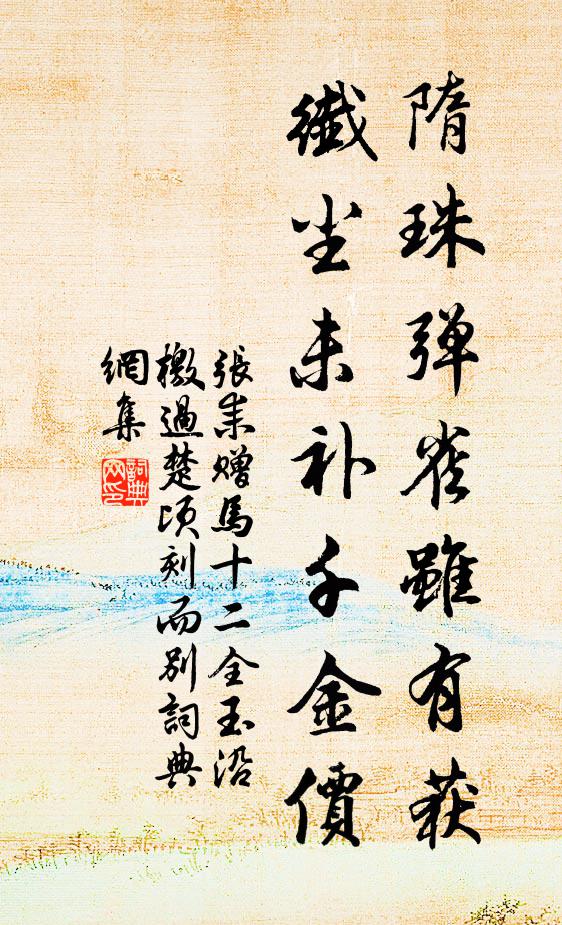 隋珠弹雀雖有获
纖尘未补千金價
張耒赠馬十二全玉沿
檄過楚頃刻而别詞典
網集
詞典
网印